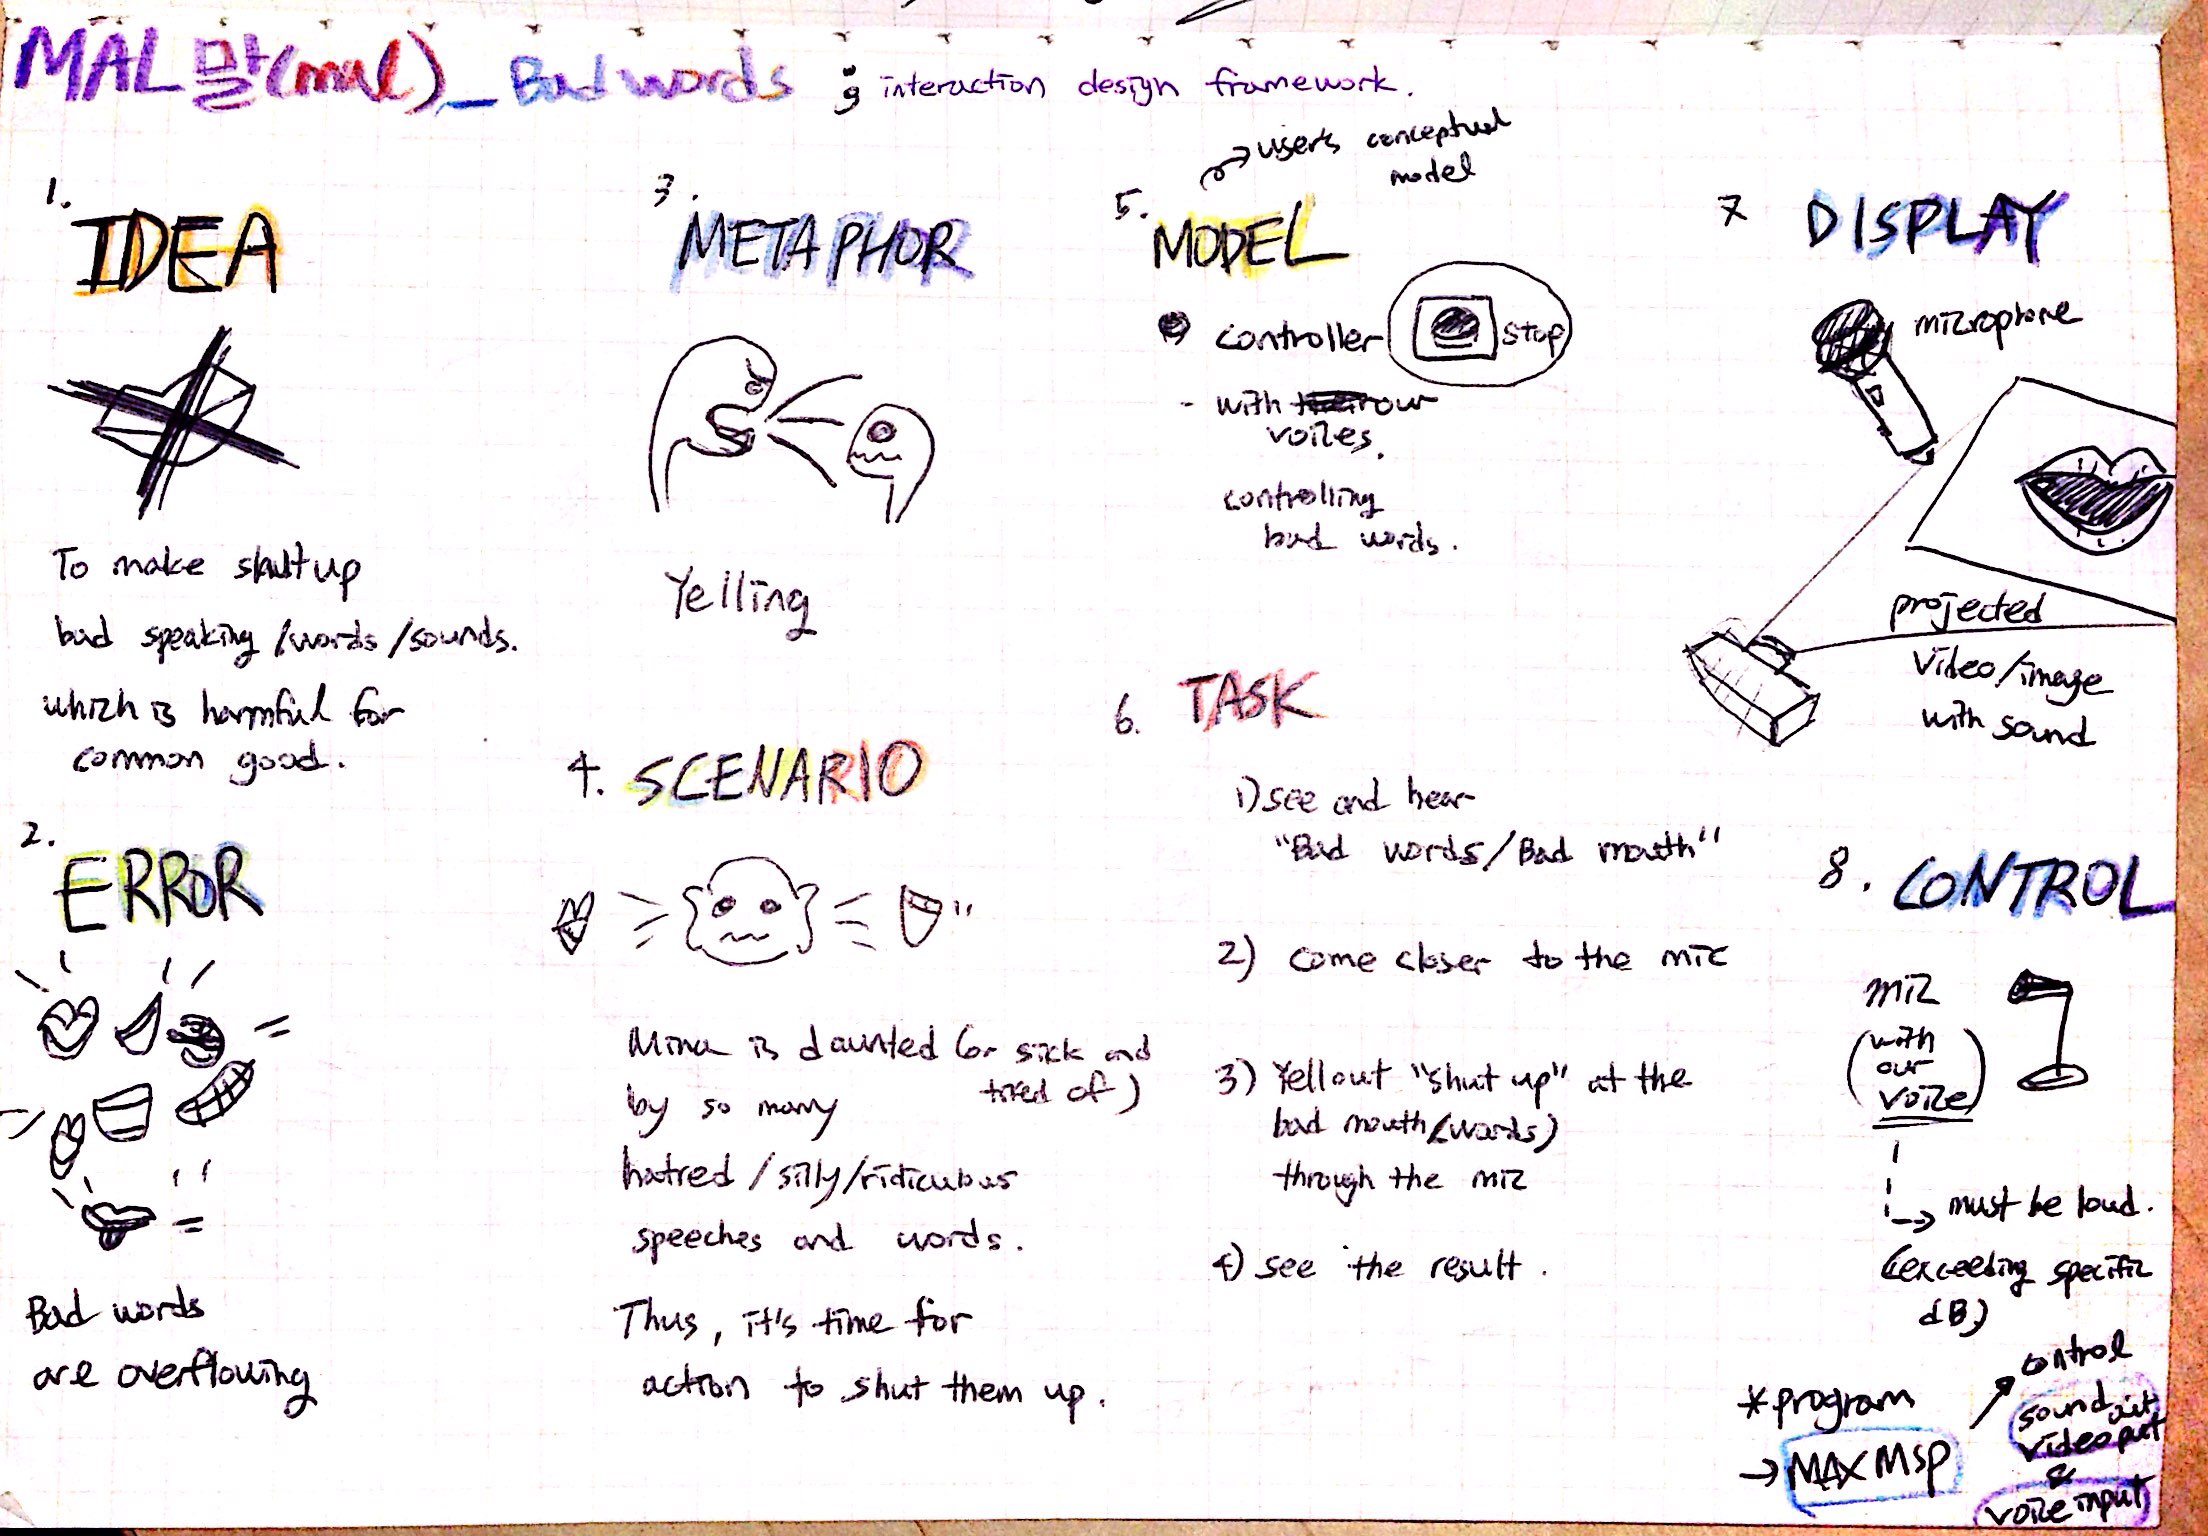 MAL 말(mal)_Bad words ; interaction design framework.
1.
IDEA
To make shut up
bad speaking /words /sounds.
which is harmful for
common good.
2.
ERROR
Bad words
are overflowing
3.
METAPHOR
Yelling
4. SCENARIO
Mina is daunted (or sick and
tired of)
by so many
hatred / silly/ridiculous
speeches and words.
Thus, it's time for
action to shut them up.
user's conceptual
model
5.
MODEL
controller
stop
- with our
voices.
controlling
bad words.
6. TASK
1) see and hear
"Bad words/Bad mouth"
2) come closer to the mic
3) Yell out "shut up" at the
bad mouth (words)
through the mic
4) see the result.
7 DISPLAY
microphone
projected
video/image
with sound
8. CONTROL
mic
(with
our
voice)
must be loud.
(exceeding specific
dB)
*program
→ MAX MSP
control
sound out
video put
&
voice input